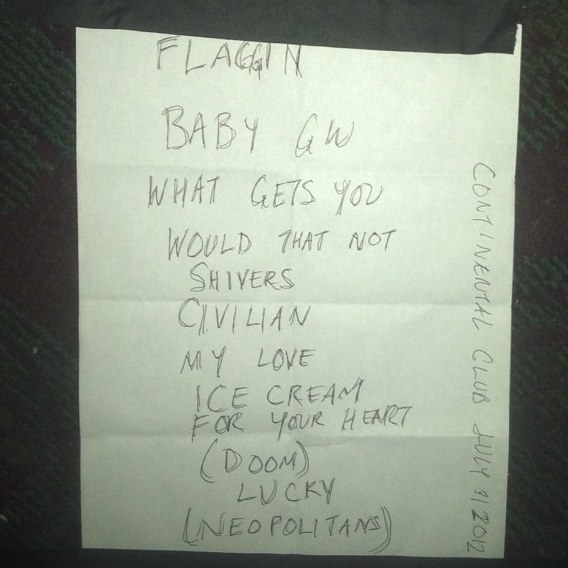 FLAGGIN
BABY GW
WHAT GETS YOU
WOULD THAT NOT
SHIVERS
CIVILIAN
MY LOVE
ICE CREAM
FOR YOUR HEART
(DOOM)
LUCKY
(NEOPOLITANS)
CONTINENTAL CLUB JULY 9/2012